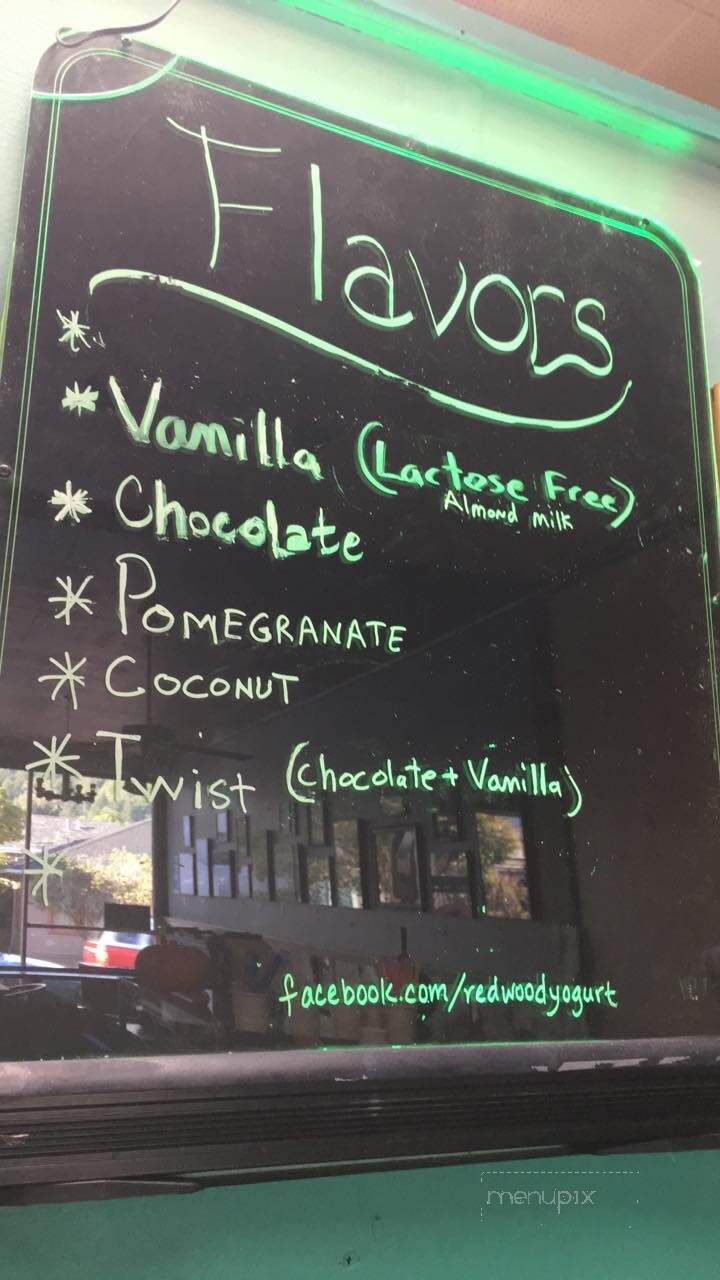 Flavors
*
* Vanilla (Lactose Free)
Almond milk
* Chocolate
* POMEGRANATE
* COCONUT
* Twist (Chocolate + Vanilla)
*
facebook.com/redwoodyogurt
menupix